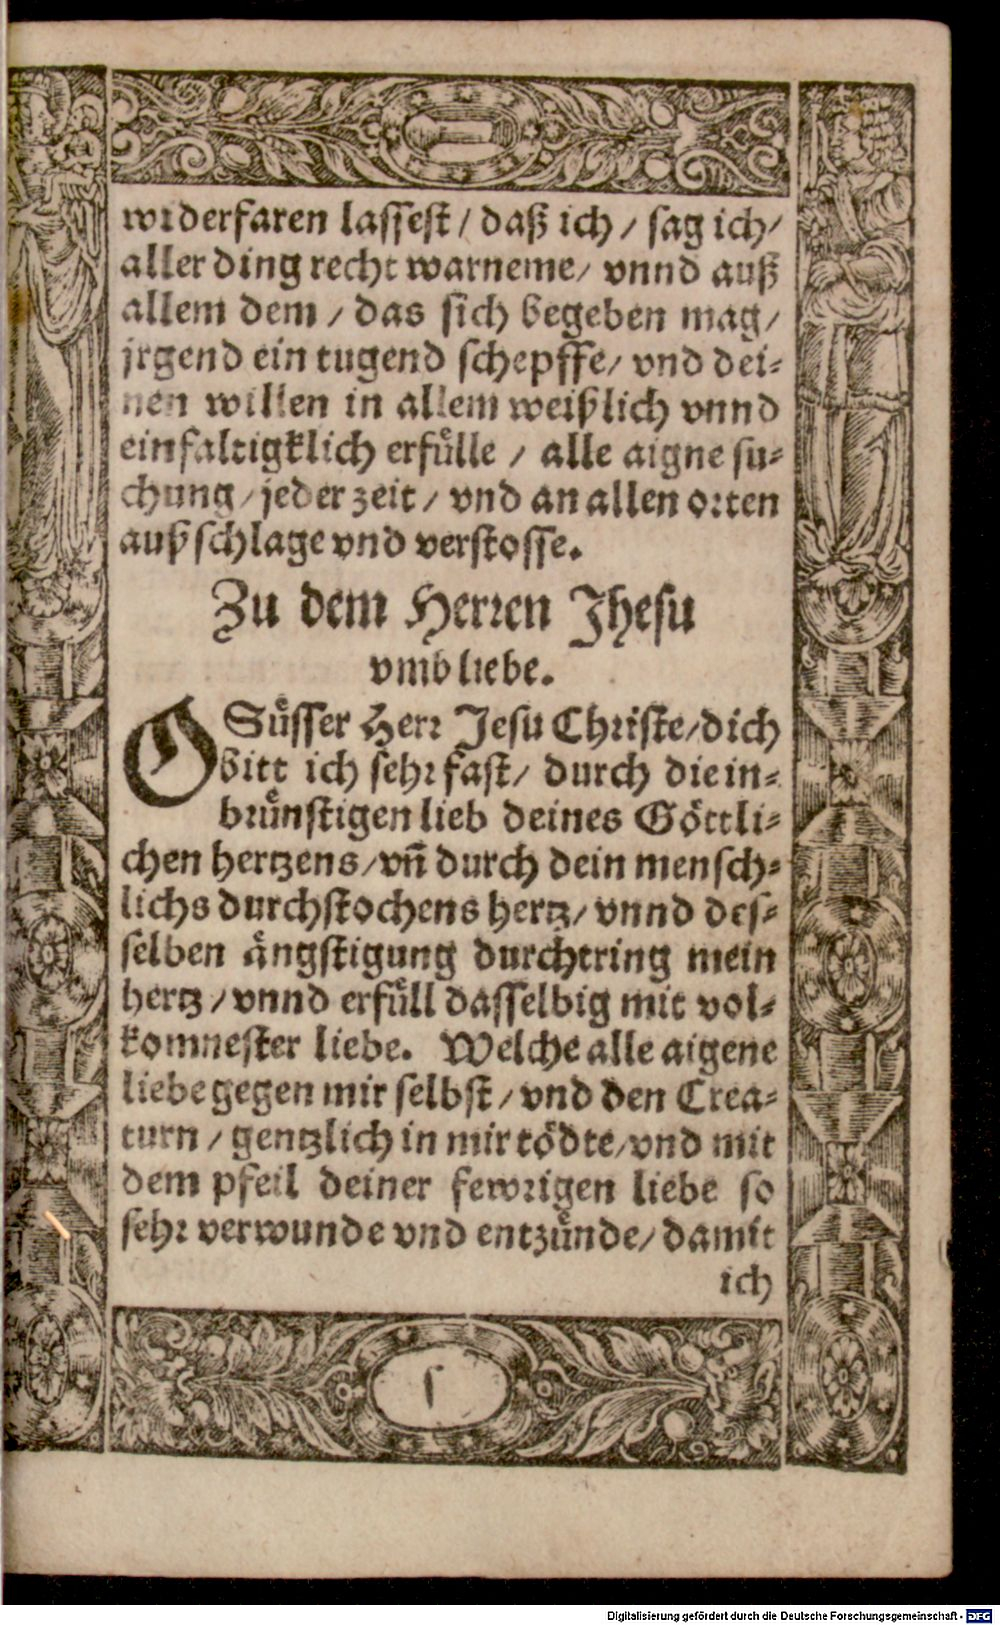 widerfaren lassest / daß ich / sag ich /
aller ding recht warneme / vnnd auß
allem dem / das sich begeben mag /
jrgend ein tugend schepffe / vnd dei-
nen willen in allem weißlich vnnd
einfaltigklich erfůlle / alle aigne su-
chung / jeder zeit / vnd an allen orten
außschlage vnd verstosse.
Zu dem Herren Jhesu
vmb liebe.
O Sůsser Herr Jesu Christe / dich
bitt ich sehr fast / durch die in-
brůnstigen lieb deines Göttli-
chen hertzens / vñ durch dein mensch-
lichs durchstochens hertz / vnnd des-
selben ångstigung durchtring mein
hertz / vnnd erfůll dasselbig mit vol-
komnester liebe. Welche alle aigene
liebe gegen mir selbst / vnd den Crea-
turn / gentzlich in mir tödte / vnd mit
dem pfeil deiner fewrigen liebe so
sehr verwunde vnd entzůnde / damit
ich
f
Digitalisierung gefördert durch die Deutsche Forschungsgemeinschaft - DFG